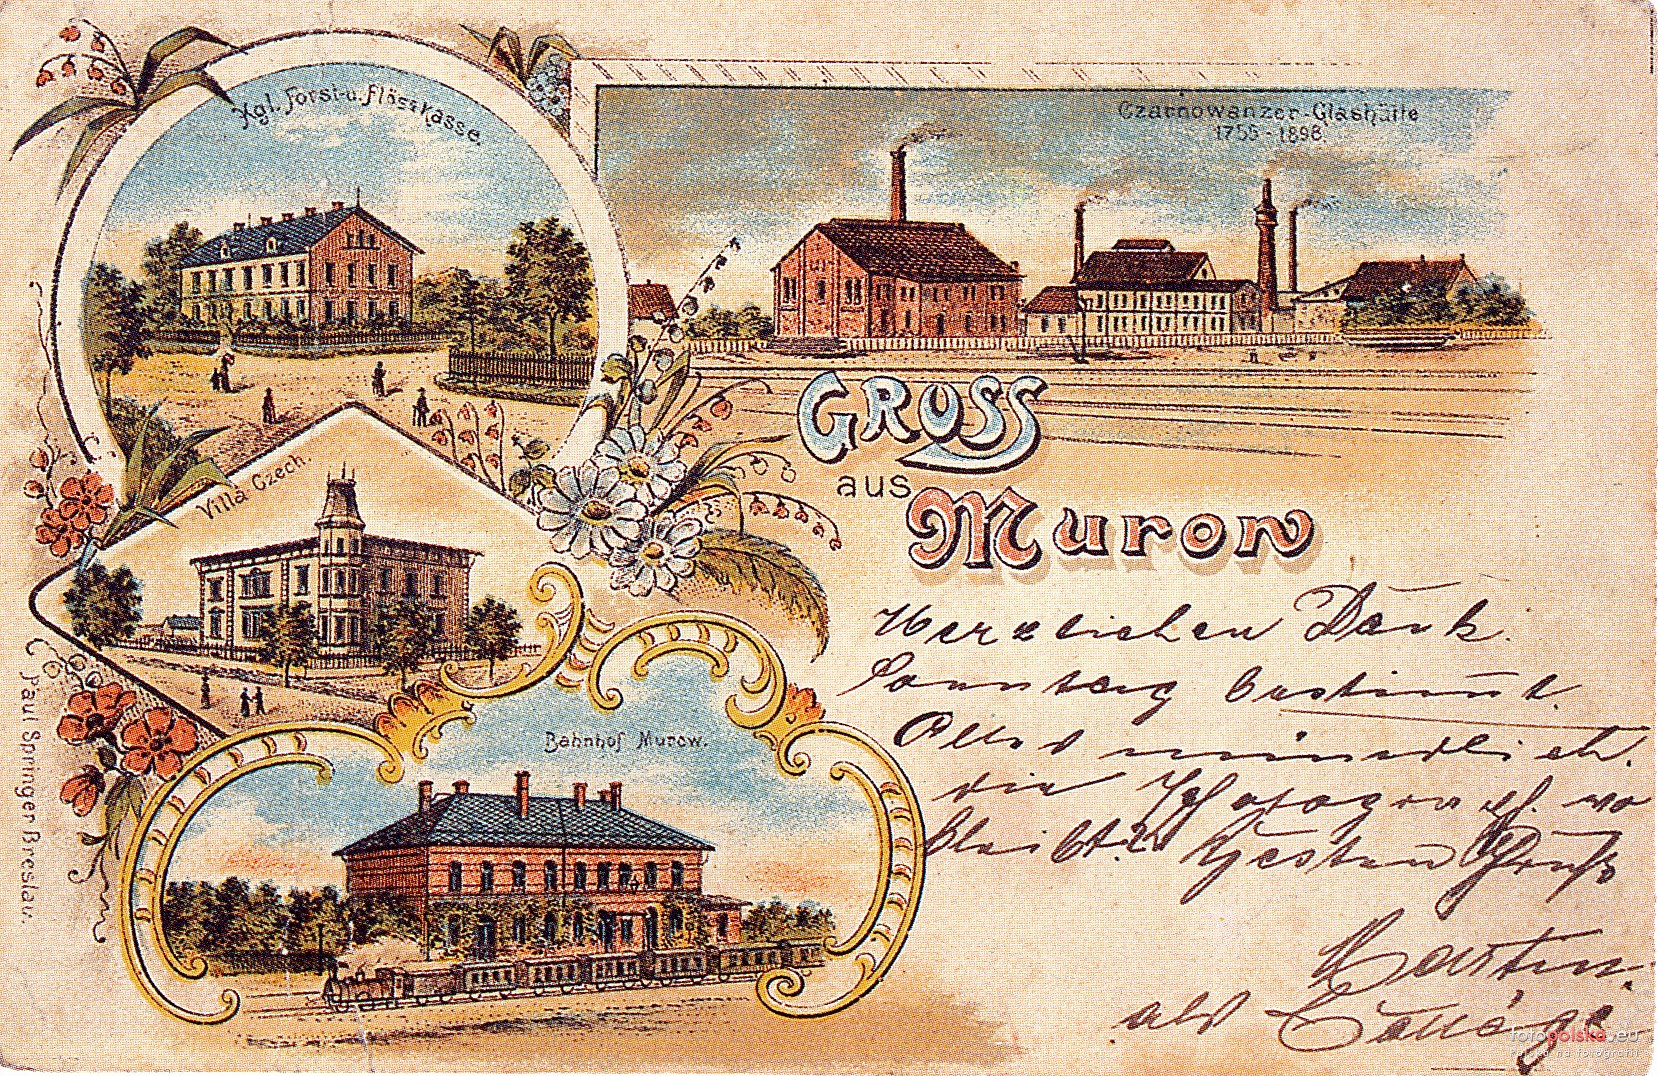 Kgl. Forst-u. Flösskasse.
Czarnowanzer-Glashütte
1755-1898.
GRUSS
aus
Murow
Villa Czech.
Bahnhof Murow.
Paul Springer Breslau.
Herzlichen Dank.
Sonntag bestimmt.
Alles mündlich.
die
bleibt.
Besten Gruß
Martin
als College
fotopolska.eu